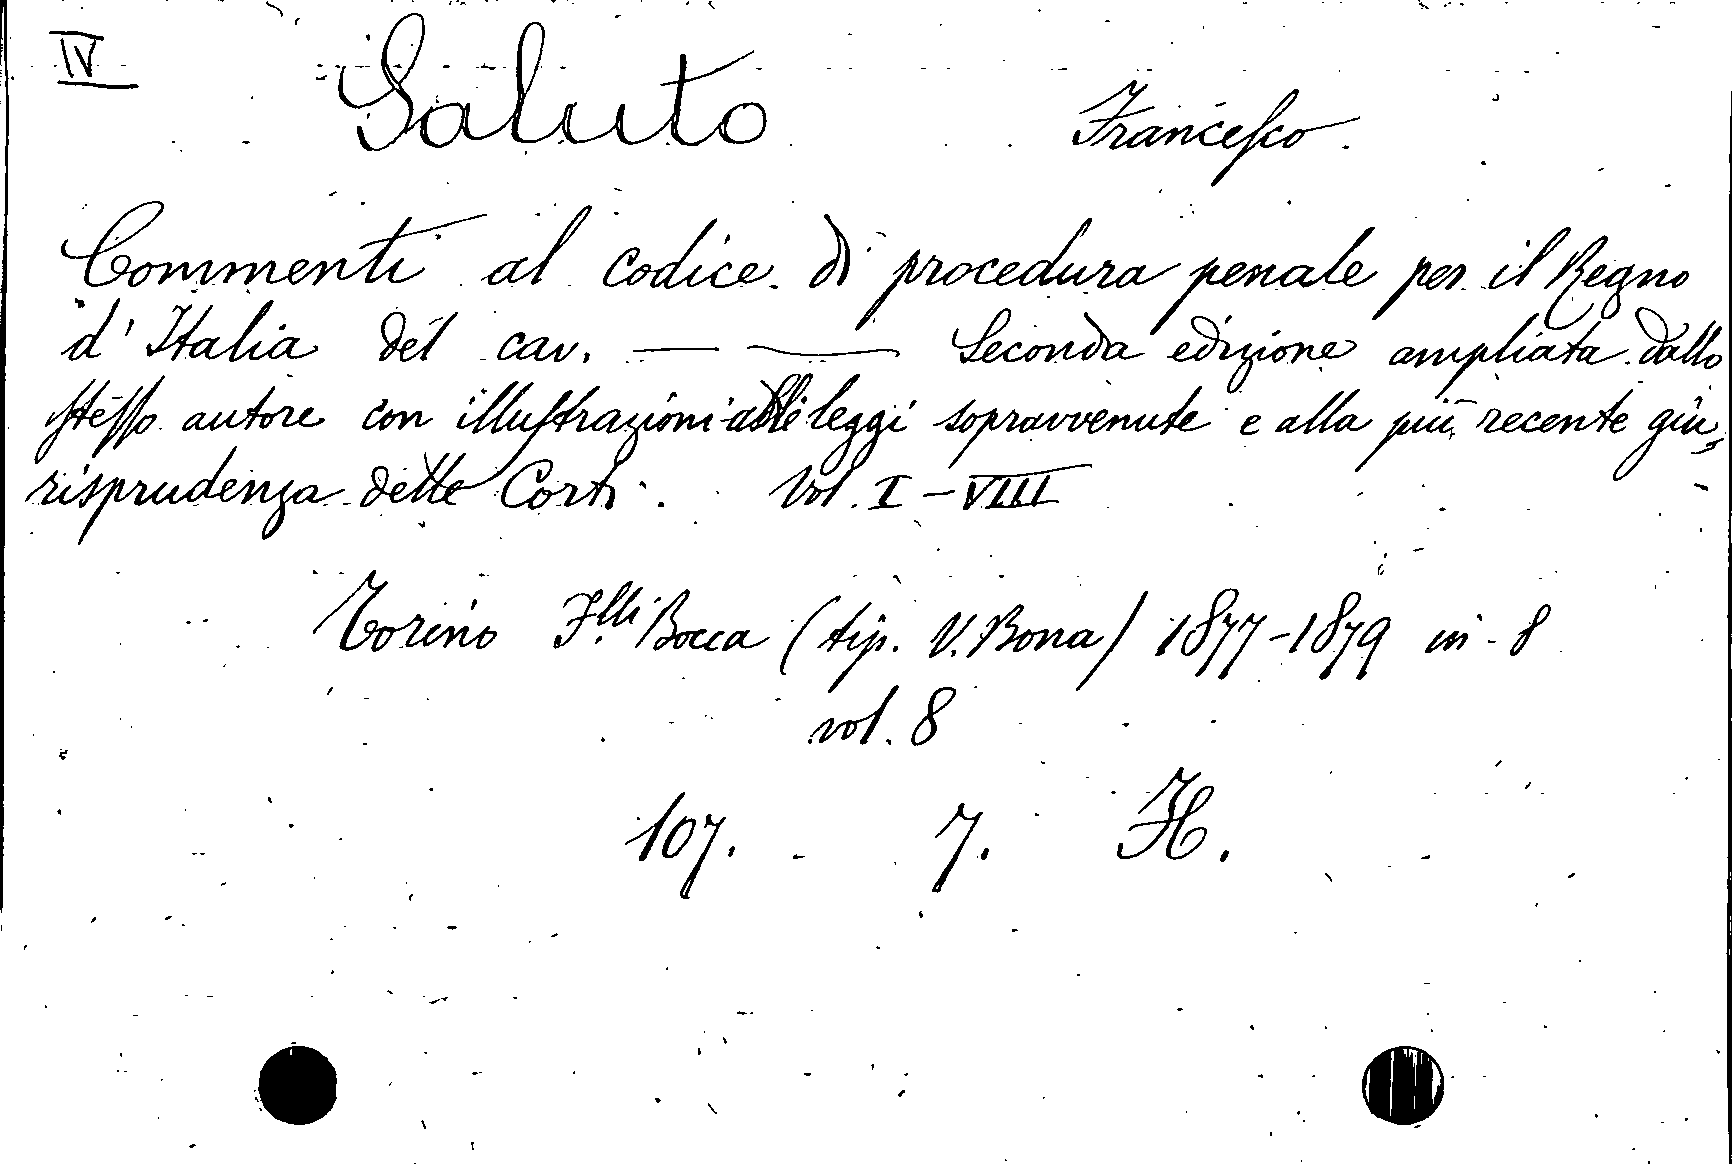 IV
Saluto Francesco.
Commenti al codice di procedura penale per il Regno
d'Italia del cav. — — Seconda edizione ampliata dallo
stesso autore con illustrazioni alle leggi sopravvenute e alla più recente giu=
risprudenza delle Corti. Vol. I – VIII
Torino F.lli Bocca (tip. V. Bona) 1877-1879 in-8
vol. 8
107. 7. H.